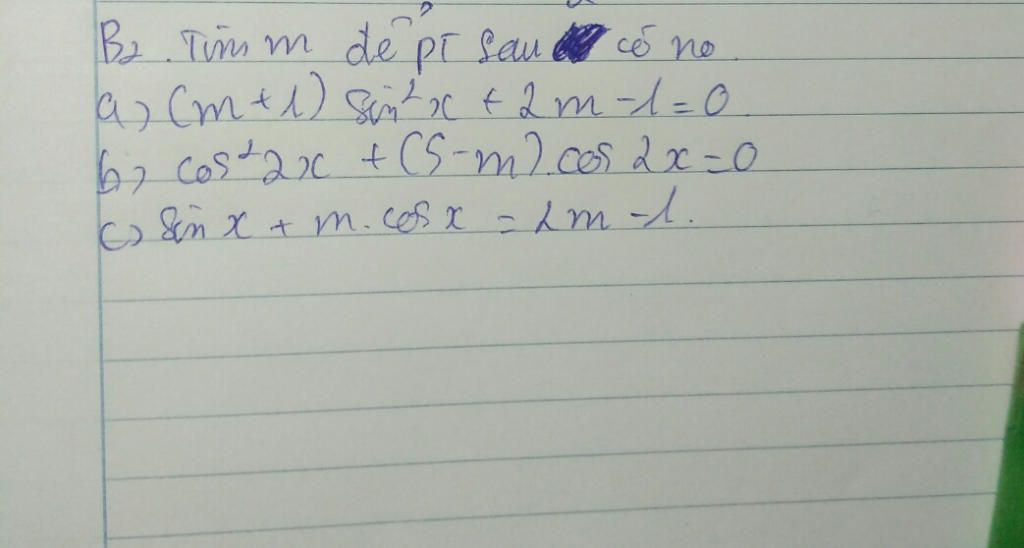 B2. Tìm m để pt sau có no.
a) (m + 1) sin²x + 2m - 1 = 0
b) cos²2x + (5 - m). cos 2x = 0
c) sin x + m. cos x = 2m - 1.